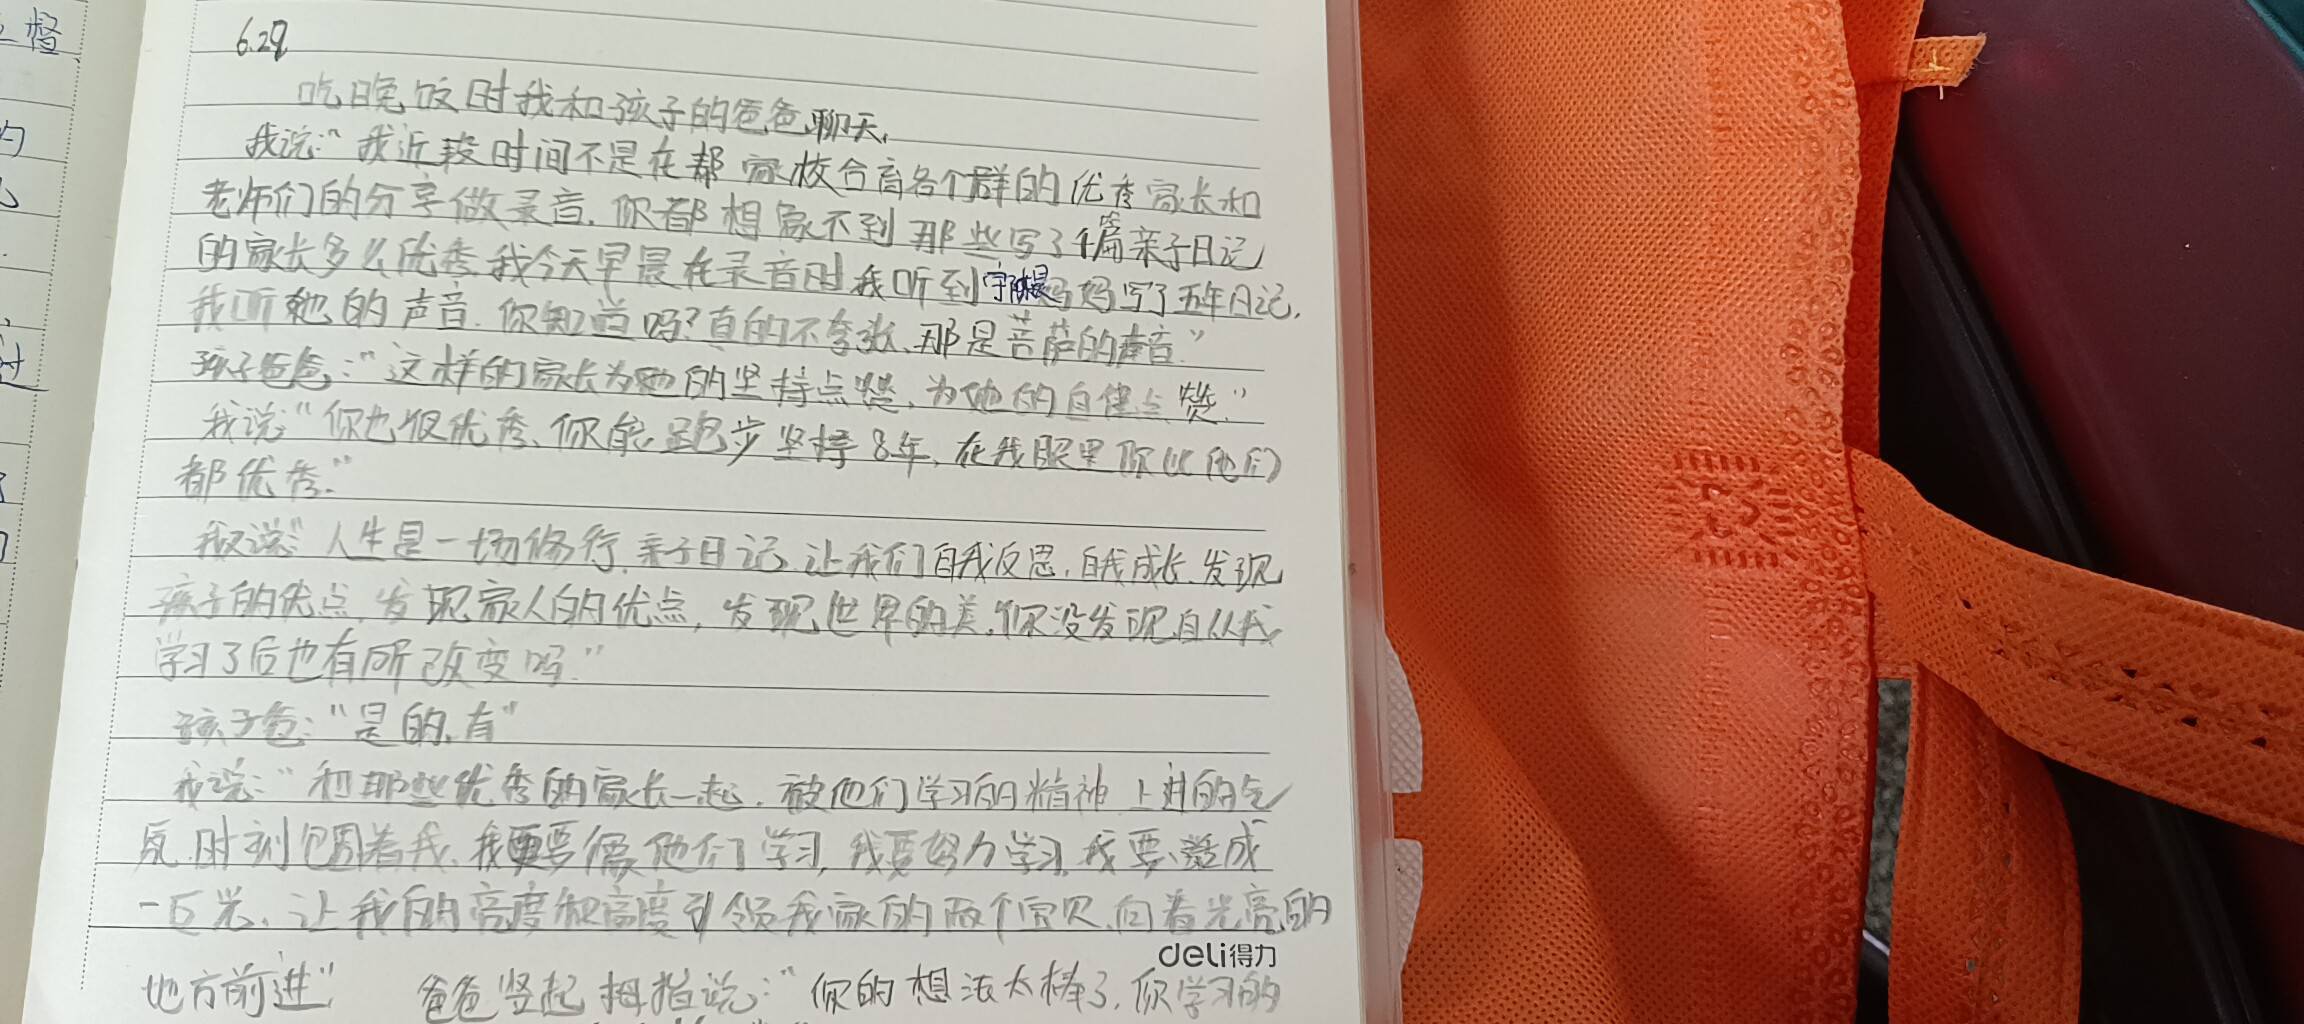 6.29
吃晚饭时我和孩子的爸爸聊天.
我说:“我近段时间不是在帮家校合育各个群的优秀家长和
老师们的分享做录音.你都想象不到那些写了千篇亲子日记
的家长多么优秀.我今天早晨在录音时我听到妈妈写了五年日记.
我听她的声音.你知道吗?真的不夸张、那是菩萨的声音.”
孩子爸爸:“这样的家长为她的坚持点赞、为她的自律点赞.”
我说:“你也很优秀、你能跑步坚持8年、在我眼里你比他们
都优秀.”
我说“人生是一场修行.亲子日记.让我们自我反思.自我成长.发现
孩子的优点.发现家人的优点,发现世界的美.你没发现自从我
学习了后也有所改变吗.”
孩子爸:“是的.有”
我说:“和那些优秀的家长一起.被他们学习的精神上进的气
氛.时刻包围着我、我要像他们学习,我要努力学习.我要活成
一匹光、让我的亮度和高度引领我家的两个宝贝.向着光亮的
deli得力
地方前进” 爸爸竖起拇指说:“你的想法太棒了.你学习的